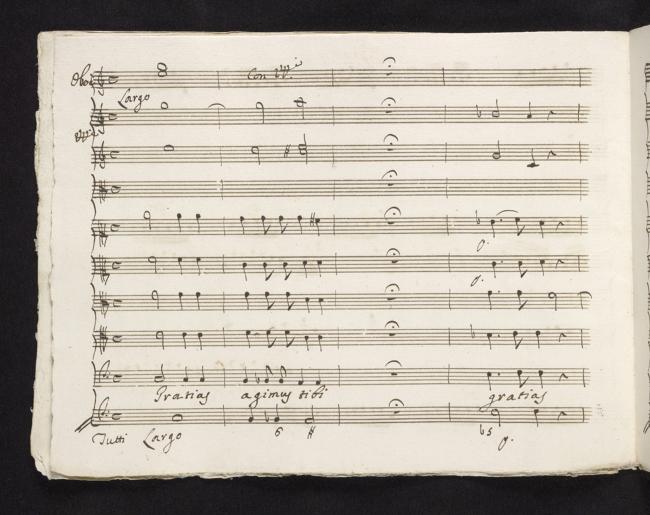 Oboe Con VV.ni
Largo
VV.ni
p.
p.
Gratias agimus tibi gratias
Tutti Largo 6 # b5 p.